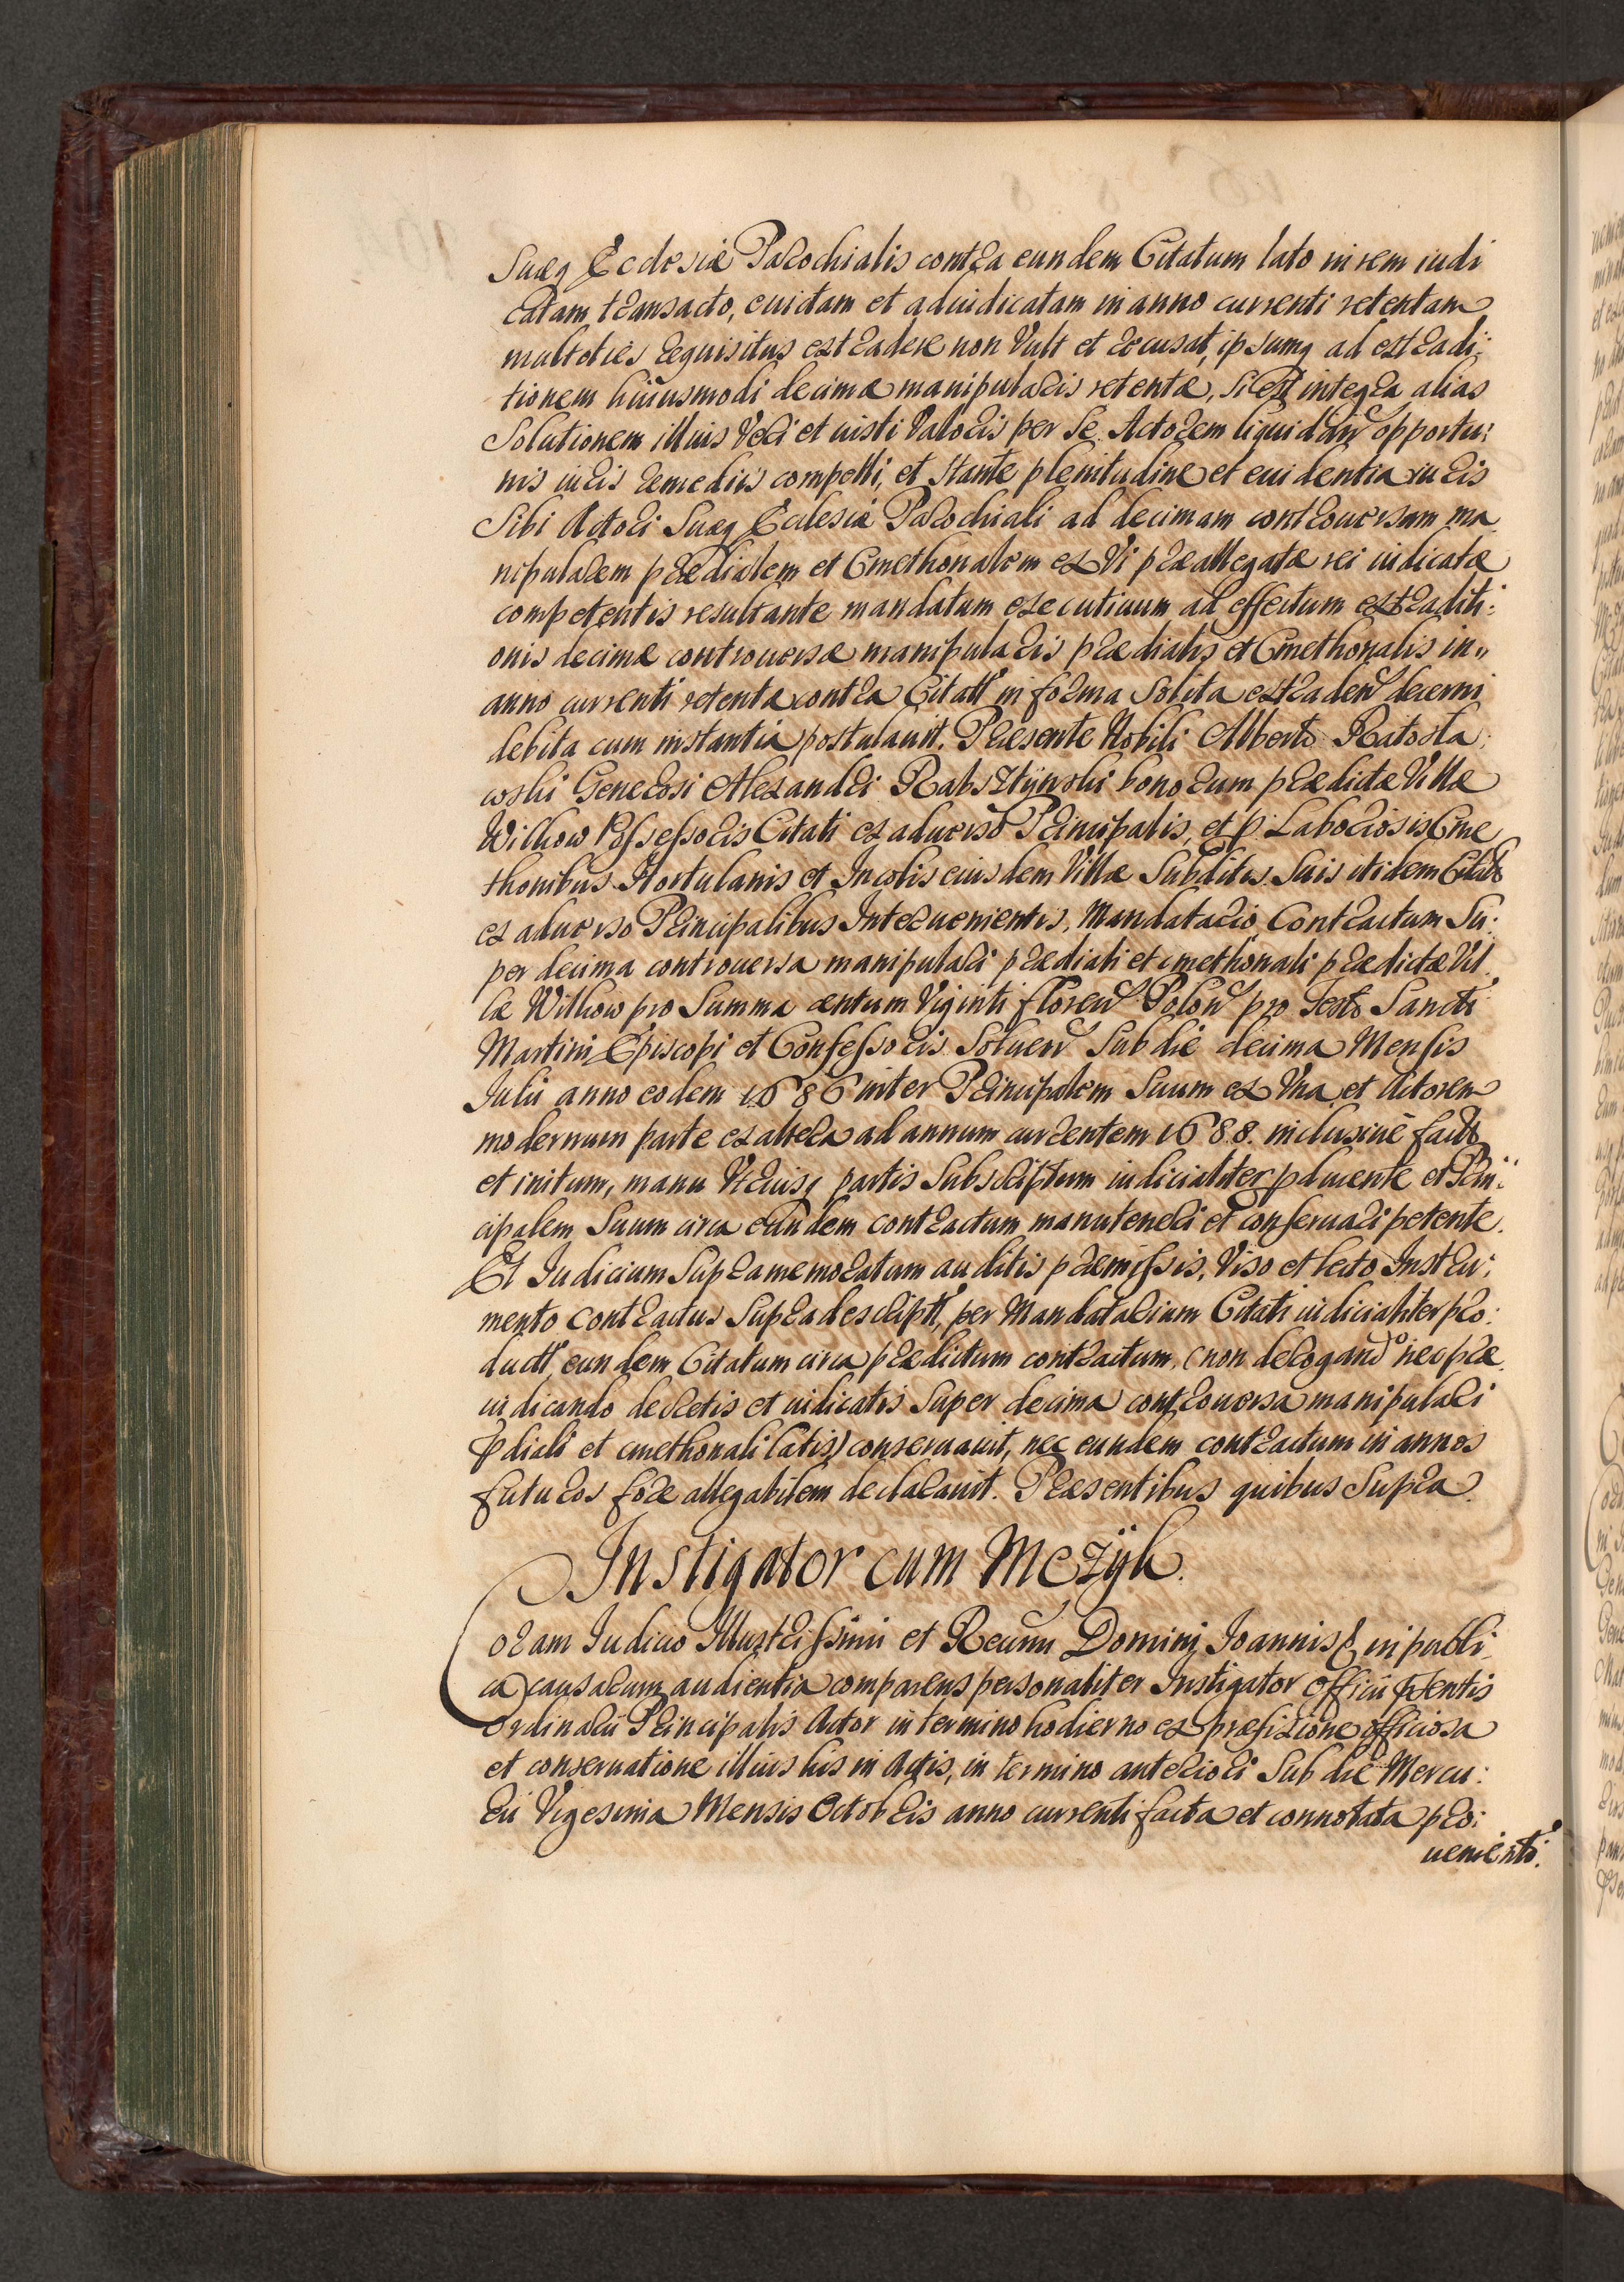 Suæq Ecclesiæ Parochialis contra eundem Citatum lato in rem iudi
catam transacto, euictam et adiudicatam in anno currenti retentam
multoties requisitus extradere non Vult et recusat, ipsumq ad extradi:
tionem huiusmodi decimæ manipularis retentæ, si est integra alias
Solutionem illius Veri et iusti Valoris per Se Actorem liquidan opportu:
nis iuris remediis compelli, et Stante plenitudine et euidentia iuris
Sibi Actori Suæq Ecclesiæ Parochiali ad decimam controuersam ma
nipularem prædialem et Cmethonalem ex Vi præallegatæ rei iudicatæ
competentis resultante mandatum executiuum ad effectum extraditi:
onis decimæ controuersæ manipularis prædialis et Cmethonalis in„
anno currenti retentæ contra Citatt in forma Solita extraden decerni
debita cum instantia postulauit. Præsente Nobili Alberto Ratosta:
wski Generosi Alexandri Rabsztÿnski bonorum prædictæ Villæ
Witkow Possessoris Citati ex aduerso Principalis, et p. Laboriosis Cme
thonibus Hortulanis et Incolis eiusdem Villæ Subditis Suis itidem Citatis
ex aduerso Principalibus Interuenientis, Mandatario Contractum Su:
per decima controuersa manipulari prædiali et cmethonali prædictæ Vil
læ Witkow pro Summa centum Viginti floren Polon pro festo Sancti
Martini Episcopi et Confessoris Soluen Sub die decima Mensis
Iulii anno eodem 1686 inter Principalem Suum ex Vna et Actorem
modernum parte ex altera ad annum currentem 1688. inclusiuè facto
et initum, manu Vtriusq partis Subscriptum iudicialiter pducente et Prin:
cipalem Suum circa eundem contractum manuteneri et conseruari petente.
Et Iudicium Supramemoratum auditis præmissis, Viso et lecto Instru:
mento contractus Supradescriptt, per Mandatarium Citati iudicialiter pro:
ductt, eundem Citatum circa prædictum contractum, (non derogando nec præ
iudicando decretis et iudicatis Super decima controuersa manipulari
pdiali et cmethonali latis) conseruauit, nec eundem contractum in annos
futuros fore allegabilem declarauit. Præsentibus quibus Supra.
Instigator cum Mezÿk.
Coram Iudicio Illustrissimi et Reuñn Domini Ioannis & in publi
ca causarum audientia comparens personaliter Instigator Officii pñtentis
Ordinarii Principalis Actor in termino hodierno ex præfixione officiosa
et conseruatione illius his in Actis, in termino anteriori Sub die Mercu:
rii Vigesima Mensis Octobris anno currenti facta et connotata pro:
uenienti: